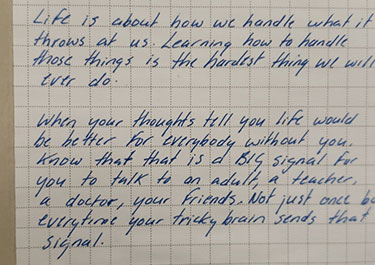 Life is about how we handle what it
throws at us. Learning how to handle
those things is the hardest thing we will
ever do.
When your thoughts tell you life would
be better for everybody without you.
Know that that is a BIG signal for
you to talk to an adult, a teacher,
a doctor, your friends. Not just once bu
everytime your tricky brain sends that
signal.